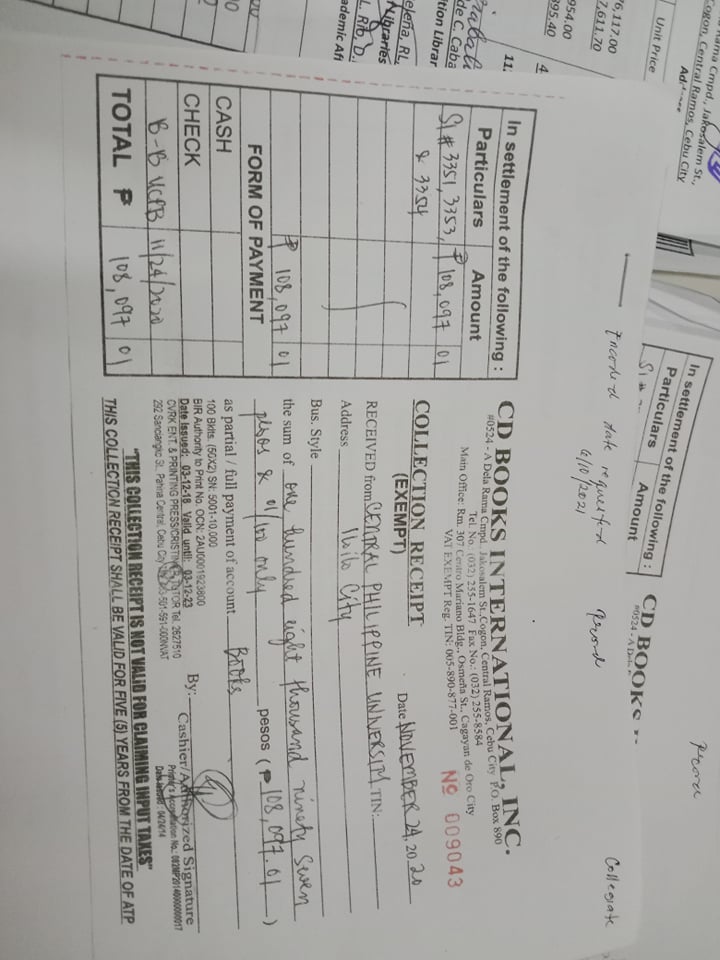 Rama Cmpd., Jakosalem St.,
Cogon, Central Ramos, Cebu City
Unit Price
76,117.00
7,611.70
954.00
395.40
11.
de C. Caba
Libraries
ademic Aff
In settlement of the following :
Particulars Amount
SI #
CD BOOKS
#0524 - A Dela
Record
Encoded date requested
6/10/2021
Record
Collegiate
In settlement of the following :
Particulars Amount
SI # 3351, 3353, ₱ 108,097 01
& 3354
₱ 108,097 01
FORM OF PAYMENT
CASH
CHECK
B-B UCPB 11/24/2020
TOTAL ₱ 108,097 01
CD BOOKS INTERNATIONAL, INC.
#0524 - A Dela Rama Cmpd., Jakosalem St.,Cogon, Central Ramos, Cebu City P.O. Box 890
Tel. No.: (032) 255-1647 Fax No.: (032) 255-8584
Main Office: Rm. 307 Centro Mariano Bldg., Osmeña St., Cagayan de Oro City
VAT EXEMPT Reg. TIN: 005-890-877-001
Nº 009043
COLLECTION RECEIPT
(EXEMPT)
Date NOVEMBER 24, 2020
RECEIVED from CENTRAL PHILIPPINE UNIVERSITY TIN:
Address Iloilo City
Bus. Style
the sum of one hundred eight thousand ninety seven
pesos & 01/100 only pesos (₱ 108,097.01)
as partial / full payment of account Books
100 Bklts. (50X2) SN: 5001-10,000
BIR Authority to Print No. OCN: 2AU0001923800
Date Issued: 03-12-18 Valid until: 03-12-23
CVRK ENT. & PRINTING PRESS/CRISTIN TOR Tel. 2627510
292 Sanciangko St., Pahina Central, Cebu City -501-591-000NVAT
By:
Cashier/Authorized Signature
Printer's Accreditation No.: 082MP20140000000017
Date Issued: 04/24/14
"THIS COLLECTION RECEIPT IS NOT VALID FOR CLAIMING INPUT TAXES"
THIS COLLECTION RECEIPT SHALL BE VALID FOR FIVE (5) YEARS FROM THE DATE OF ATP